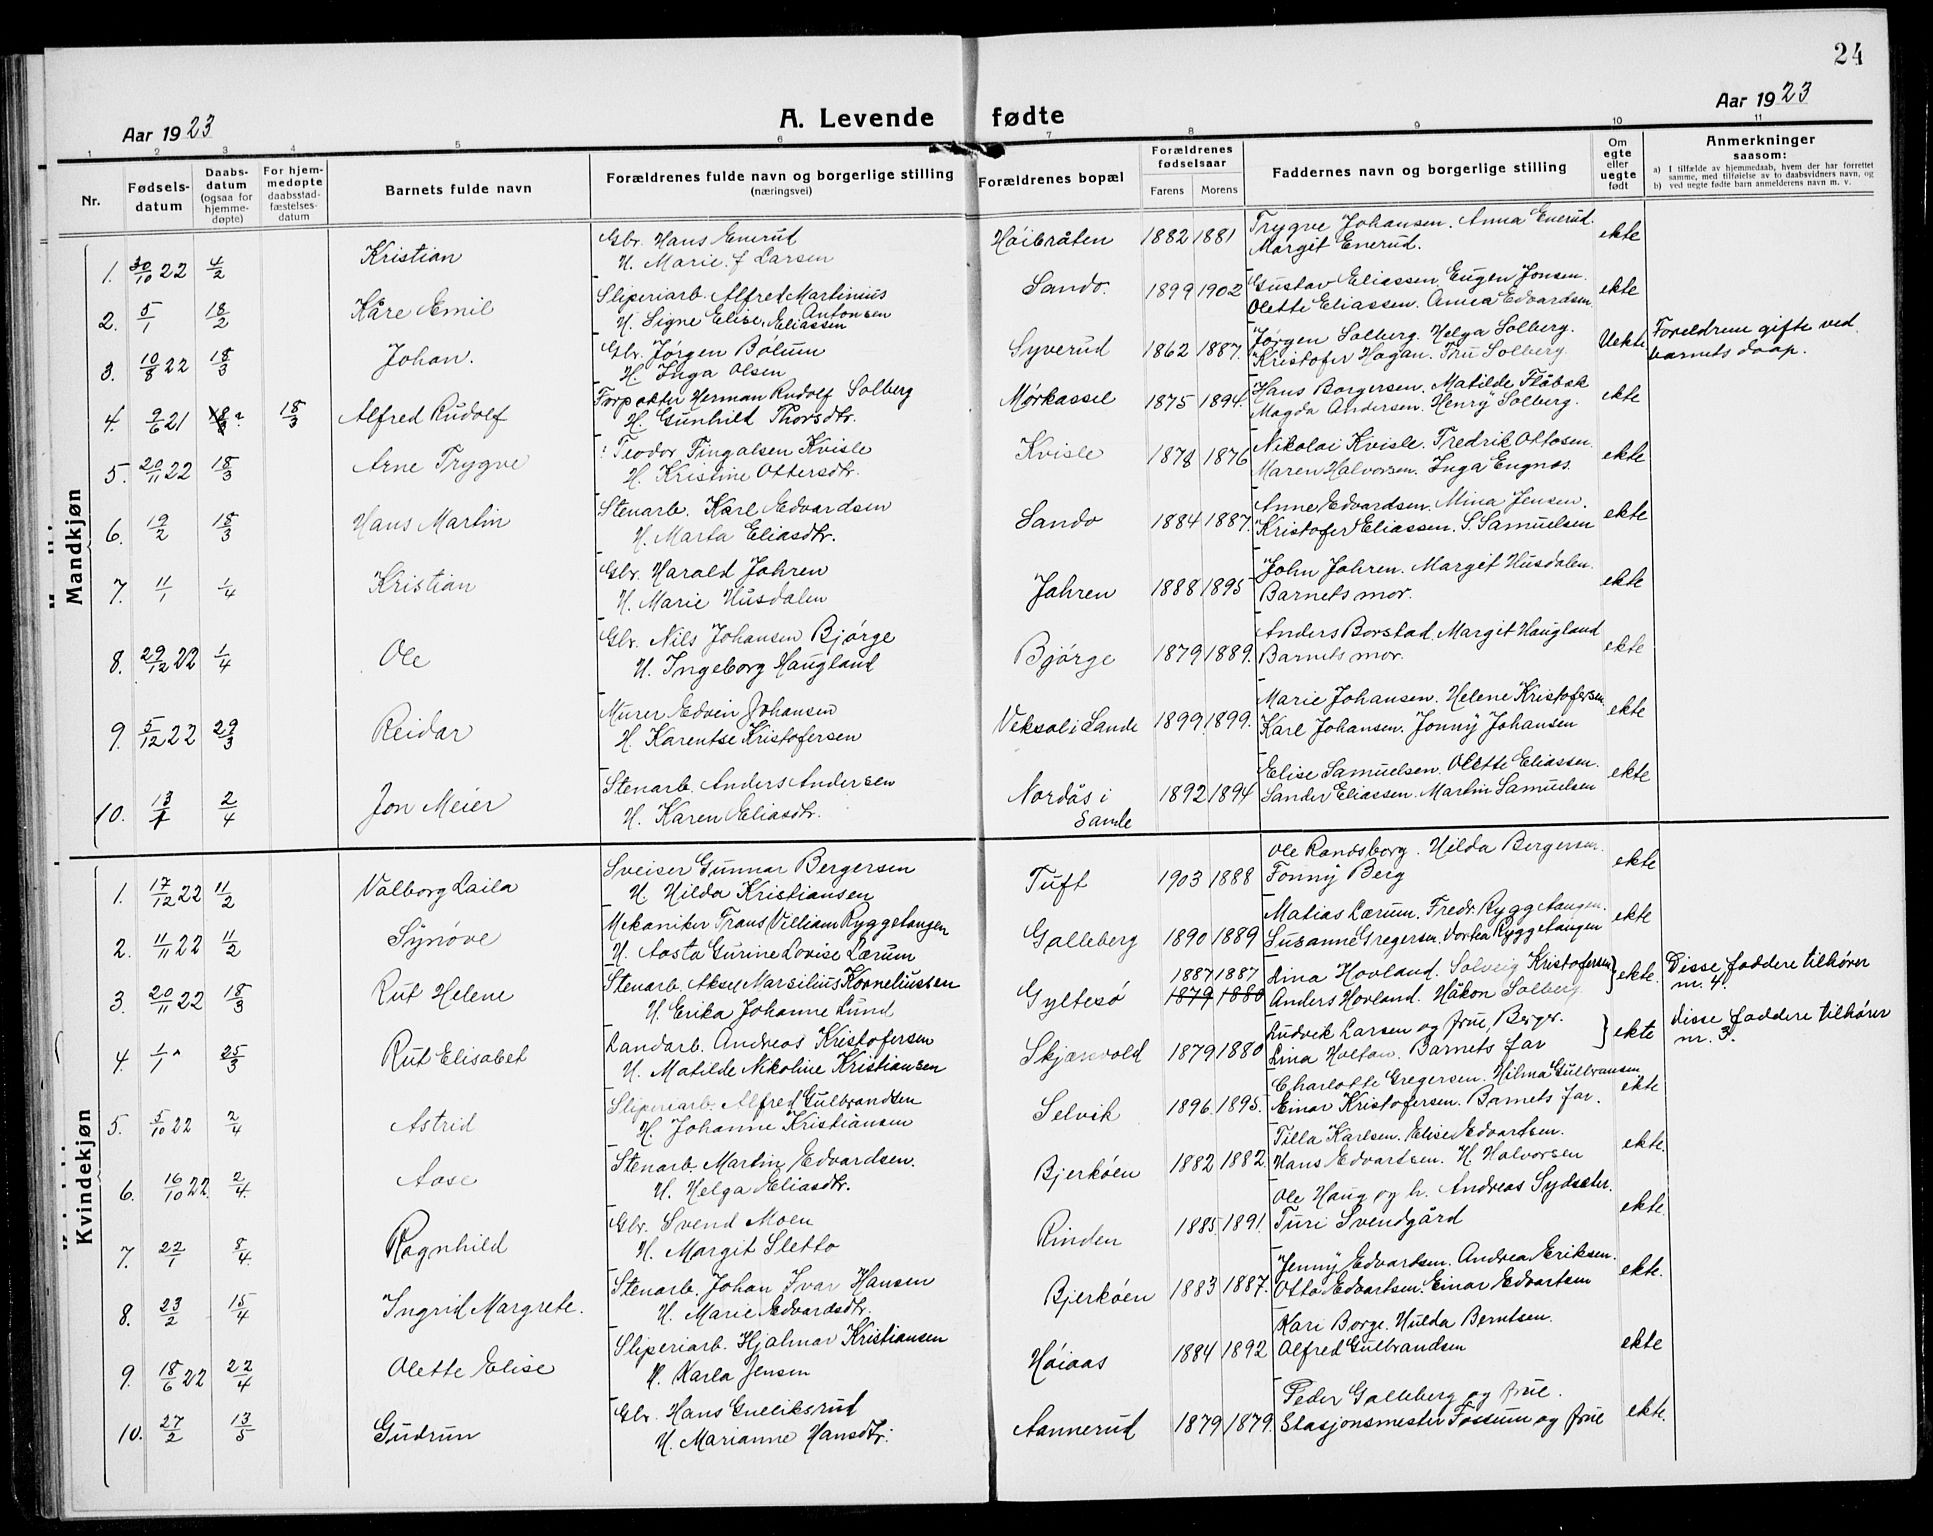 24
Aar 1923
A. Levende fødte
Aar 1923
1 2 3 4 5 6 7 8 9 10 11
Nr.
Fødsels-datum
Daabs-datum (ogsaa for hjemme-døpte)
For hjem-medøpte daabsstad-fæstelses-datum
Barnets fulde navn
Forældrenes fulde navn og borgerlige stilling (næringsvei)
Forældrenes bopæl
Forældrenes fødselsaar
Farens Morens
Faddernes navn og borgerlige stilling
Om egte eller uegte født
Anmerkninger saasom:
a) I tilfælde av hjemmedaab, hvem der har forrettet samme, med tilføielse av to daabsvidners navn, og
b) ved uegte fødte barn anmelderens navn m. v.
Mandkjøn
1. 30/10 22 4/2 Kristian Gbr. Hans Enerud Høibråten 1882 1881 Trygve Johansen. Anna Enerud. ekte
H. Marie f. Larsen Margit Enerud.
2. 5/1 18/2 Kåre Emil Sliperiarb. Alfred Martinius Antonsen Sando. 1899 1902 Gustav Eliassen. Eugen Jonsen. ekte
H. Signe Elise Eliassen Olette Eliassen. Anna Edvardsen
3. 10/8 22 18/3 Johan. Gbr. Jørgen Bølum Syverud 1862 1887. Jørgen Solberg. Helga Solberg. Uekte Foreldrene gifte ved
H. Inga Olsen Kristofer Hagan. Fru Solberg. barnets daap.
4. 9/6 21 18/3 Alfred Rudolf Forpakter Herman Rudolf Solberg Mørkassel 1875 1894. Hans Borgersen. Matilde Flåbak ekte
H. Gunhild Thorsdtr. Magda Andersen. Henry Solberg.
5. 20/11 22 18/3 Arne Trygve Teodor Fingalsen Kvisle Kvisle 1878 1876 Nikolai Kvisle. Fredrik Ottosen. ekte
H. Kristine Ottersdtr. Maren Halvorsen. Inga Engnæs.
6. 19/2 18/3 Hans Martin Stenarb. Karl Edvardsen Sando 1884 1887. Anne Edvardsen. Mina Jensen. ekte
H. Marta Eliasdtr. Kristofer Eliassen. S. Samuelsen
7. 11/1 1/4 Kristian Gbr. Harald Jahren Jahren 1888 1895 John Jahren. Margit Husdalen. ekte
H. Marie Husdalen Barnets mor.
8. 29/12 22 1/4 Ole Gbr. Nils Johansen Bjørge Bjørge 1879 1889. Anders Borstad. Margit Haugland ekte
H. Ingeborg Haugland Barnets mor.
9. 5/12 22 29/3 Reidar Murer Edvin Johansen Veksal i Sande 1899 1899. Marie Johansen. Helene Kristofersen. ekte
H. Karentse Kristofersen Karl Johansen. Jonny Johansen
10. 13/1 2/4 Jon Meier Stenarb. Anders Andersen Nordås i Sande 1892 1894 Elise Samuelsen. Olette Eliassen. ekte
H. Karen Eliasdtr. Sander Eliassen. Martin Samuelsen
Kvindekjøn
1. 17/12 22 11/2 Valborg Laila Sveiser Gunnar Bergersen Tuft 1903 1888 Ole Randsborg. Hilda Bergersen. ekte
H. Hilda Kristiansen Fonny Berg
2. 11/11 22 11/2 Synøve Mekaniker Frans Villiam Ryggetangen Galleberg 1890 1889 Matias Lærum. Fredr. Ryggetangen. ekte
H. Aasta Gurine Lovise Lærum Susanne Gregersen. Dortea Ryggetangen
3. 20/11 22 18/3 Rut Helene Stenarb. Aksel Marsilius Korneliussen Gyltesø 1887 1887 Lina Hovland. Solveig Kristofersen ekte. Disse faddere tilhører
H. Erika Johanne Lund 1879 1880 Anders Hovland. Håkon Solberg nr. 4.
4. 1/1 25/3 Rut Elisabet Landarb. Andreas Kristofersen Skjønvold 1879 1880 Ludvik Larsen og frue, Berger. ekte Disse faddere tilhører
H. Matilde Nikoline Kristiansen Lina Holtan. Barnets far nr. 3.
5. 5/10 22 2/4 Astrid Sliperiarb. Alfred Gulbrandsen Selvik 1896. 1895. Charlotte Gregersen. Hilma Gulbransen ekte
H. Johanne Kristiansen Einar Kristofersen. Barnets far.
6. 16/10 22 2/4 Aase Stenarb. Martin Edvardsen. Bjerkøen 1882 1882. Tilla Karlsen. Elise Edvartsen. ekte.
H. Helga Eliasdtr. Hans Edvartsen. H. Halvorsen
7. 22/1 8/4 Ragnhild Gbr. Svend Moen Rinden 1885 1891. Ole Haug og h. Andreas Sydsæter. ekte.
H. Margit Sletto Turi Svendgård
8. 23/2 15/4 Ingrid Margrete. Stenarb. Johan Ivar Hansen Bjerkøen 1883 1887. Jenny Edvartsen. Andrea Eriksen. ekte.
H. Marie Edvardsdtr. Otto Edvartsen. Einar Edvartsen
9. 18/6 22 22/4 Olette Elise Sliperiarb. Hjalmar Kristiansen Høiaas 1884 1892 Kari Borge. Hulda Berntsen. ekte
H. Karla Jensen Alfred Gulbrandsen
10. 27/2 13/5 Gudrun Gbr. Hans Gulliksrud Aannerud 1879 1879. Peder Galleberg og frue. ekte.
H. Marianne Hansdtr. Stasjonsmester Fossum og frue